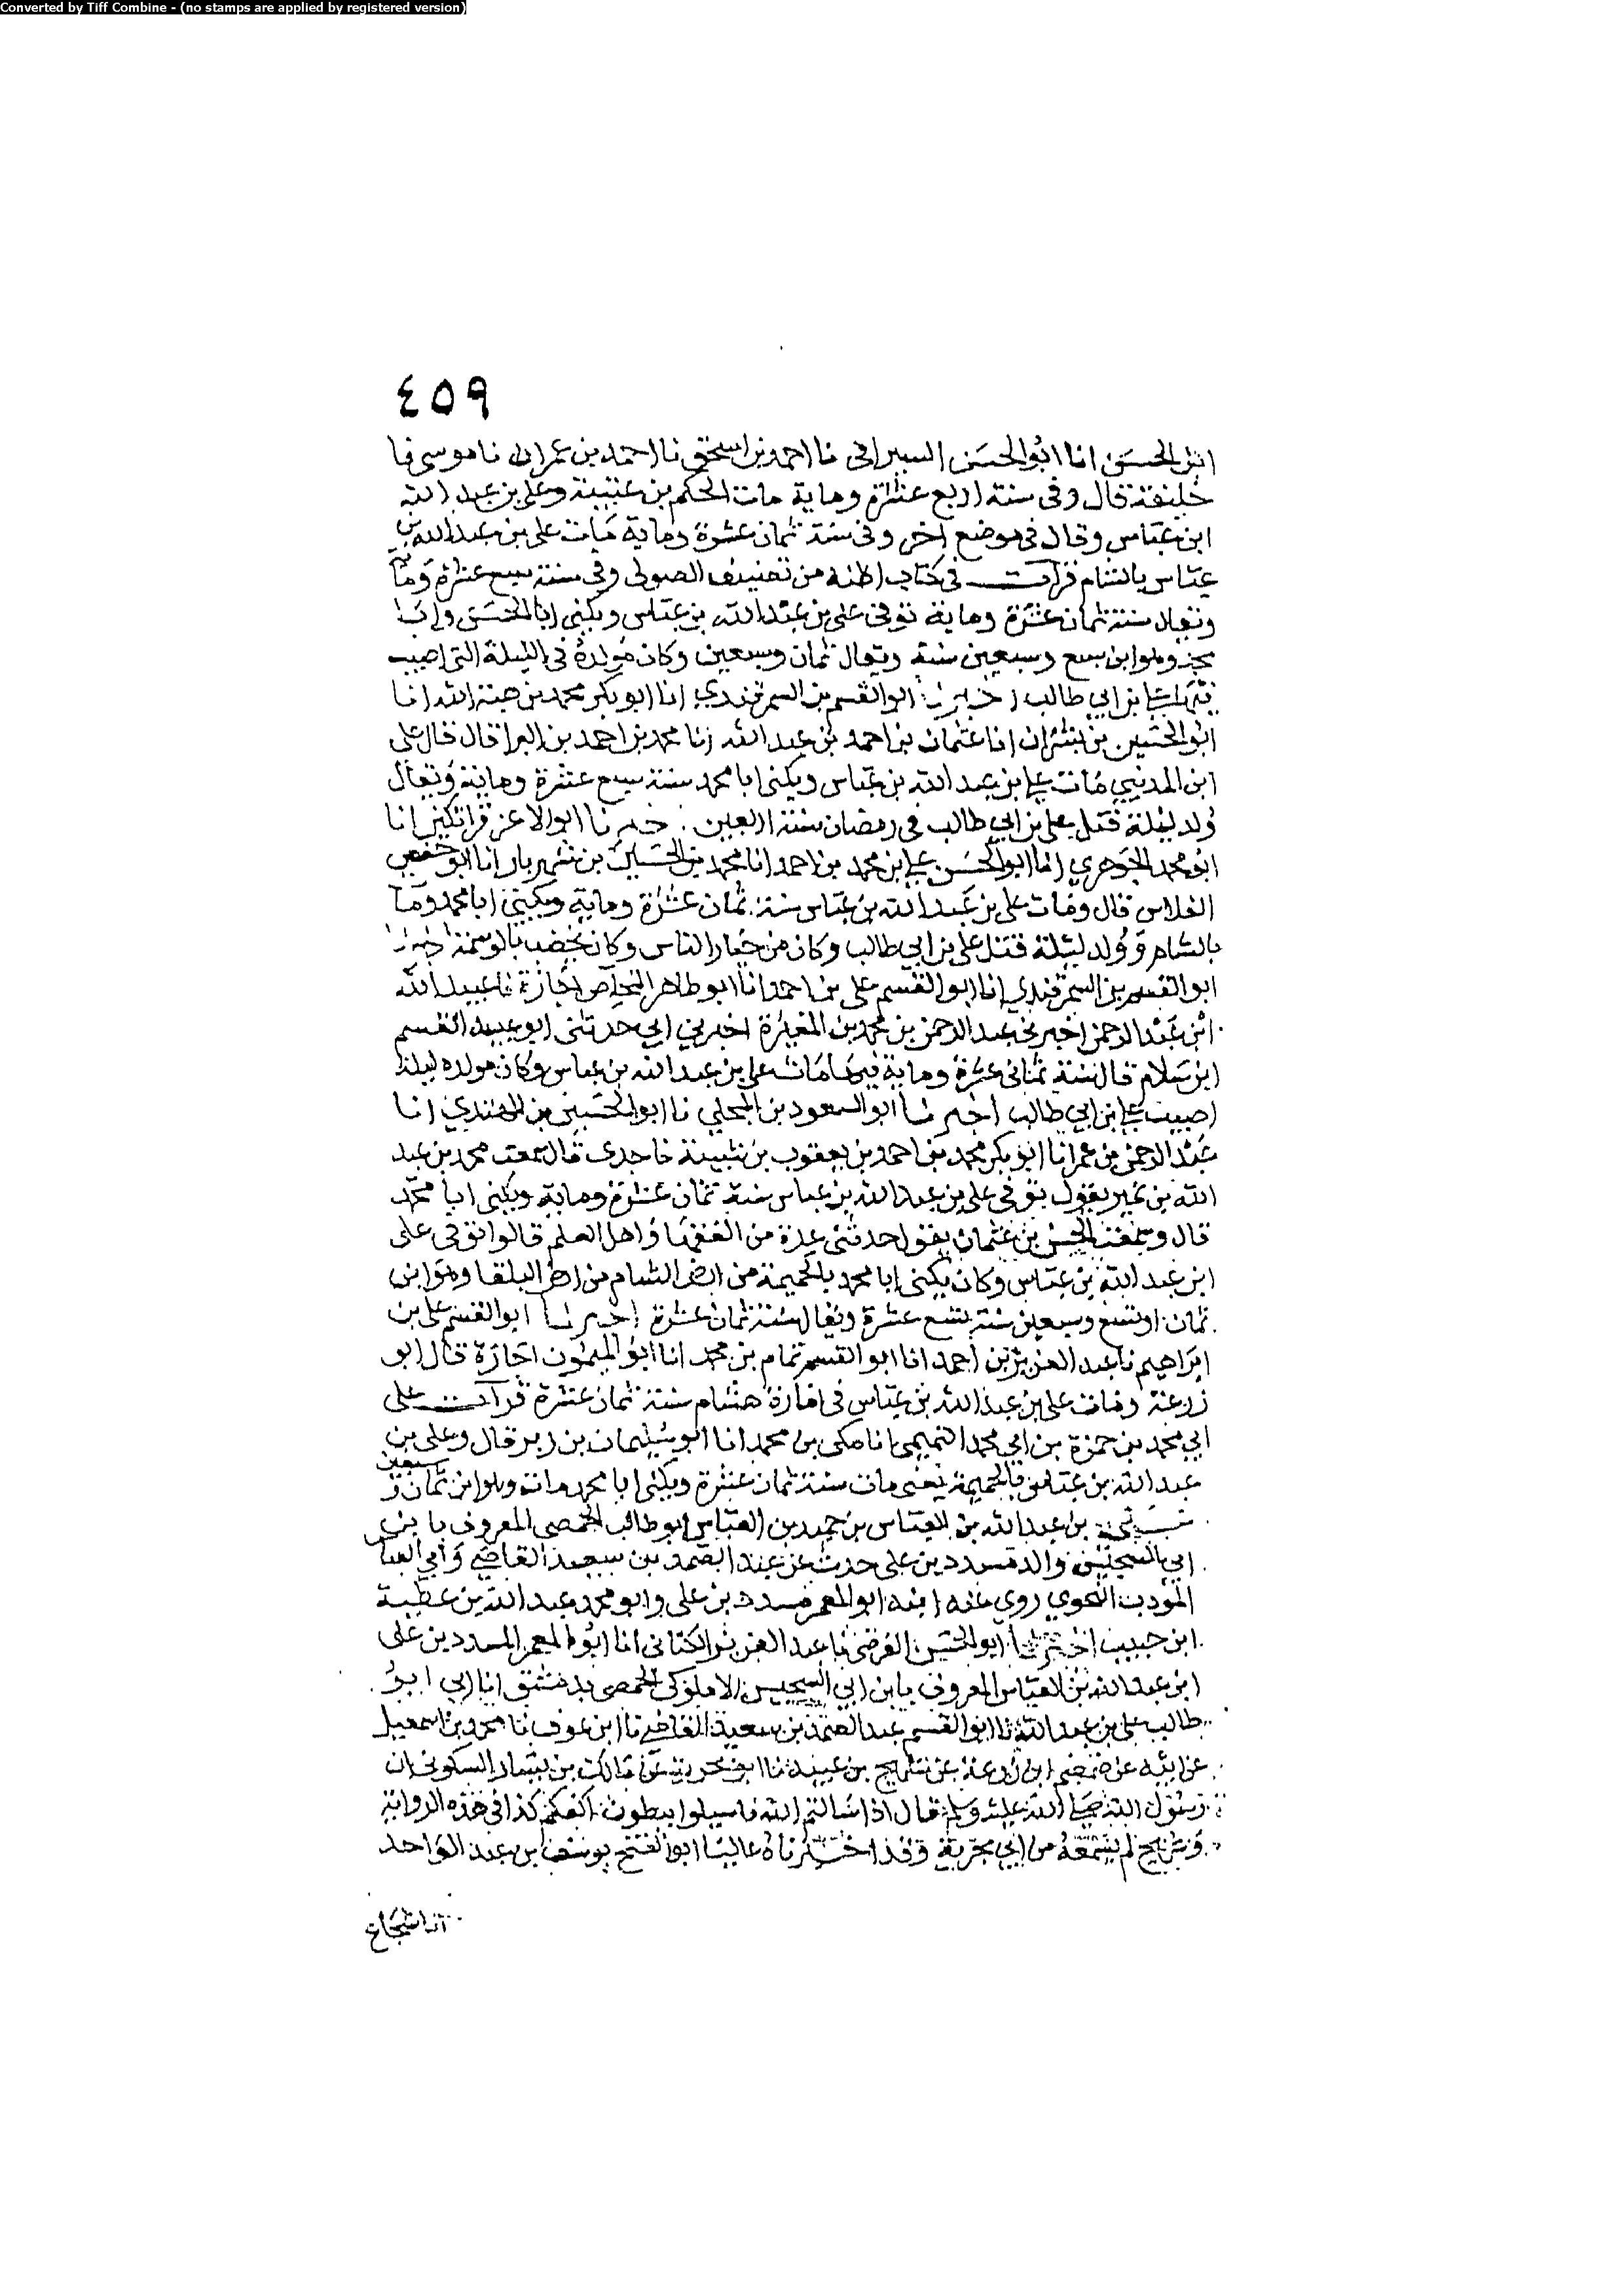 Converted by Tiff Combine - (no stamps are applied by registered version)
٤٥٩
ابن الحسن انا ابو الحسن السيرافي نا احمد بن اسحق نا احمد بن عمران نا موسى نا
خليفة قال وفي سنة اربع عشرة وماية مات الحكم بن عتيبة وعلي بن عبد الله
ابن عباس وقال في موضع اخر وفي سنة ثمان عشرة وماية مات علي بن عبد الله بن
عباس بالشام قرات في كتاب اظنه من تصنيف الصولي وفي سنة سبع عشرة وماية
ويقال سنة ثمان عشرة وماية توفي علي بن عبد الله بن عباس ويكنى ابا الحسن وابا
محمد وهو ابن سبع وسبعين سنة ويقال ثمان وسبعين وكان مولده في الليلة التي اصيب
فيها علي بن ابي طالب اخبرنا ابو القسم بن السمرقندي انا ابو بكر محمد بن هبة الله انا
ابو الحسين بن بشران انا عثمان بن احمد بن عبد الله نا محمد بن احمد بن البرا قال قال علي
ابن المديني مات علي بن عبد الله بن عباس ويكنى ابا محمد سنة سبع عشرة وماية ويقال
ولد ليلة قتل علي بن ابي طالب في رمضان سنة اربعين اخبرنا ابو الاعز قراتكين انا
ابو محمد الجوهري انا ابو الحسن علي بن محمد بن احمد انا محمد بن الحسين بن شهريار انا ابو حفص
الفلاس قال ومات علي بن عبد الله بن عباس سنة ثمان عشرة وماية ويكنى ابا محمد ومات
بالشام وولد ليلة قتل علي بن ابي طالب وكان من خيار الناس وكان يخضب بالوسمة اخبرنا
ابو القسم بن السمرقندي انا ابو القسم علي بن احمد انا ابو طاهر المخلص اجازة نا عبيد الله
ابن عبد الرحمن اخبرني عبد الرحمن بن محمد بن المغيرة اخبرني ابي حدثني ابو عبيد القسم
ابن سلام قال سنة ثماني عشرة وماية فيها مات علي بن عبد الله بن عباس وكان مولده ليلة
اصيب علي بن ابي طالب اخبرنا ابو السعود بن المجلي نا ابو الحسين بن المهتدي انا
عبد الرحمن بن عمر انا ابو بكر محمد بن احمد بن يعقوب بن شيبة نا جدي قال سمعت محمد بن عبد
الله بن نمير يقول توفي علي بن عبد الله بن عباس سنة ثمان عشرة وماية ويكنى ابا محمد
قال وسمعت الحسن بن عثمان يقول حدثني عدة من الفقها واهل العلم قالوا توفي علي
ابن عبد الله بن عباس وكان يكنى ابا محمد بالحميمة من ارض الشام من ارض البلقا وهو ابن
ثمان او تسع وسبعين سنة تسع عشرة ويقال سنة ثمان عشرة اخبرنا ابو القسم علي بن
ابراهيم نا عبد العزيز بن احمد انا ابو القسم تمام بن محمد انا ابو الميمون اجازة قال ابو
زرعة ومات علي بن عبد الله بن عباس في امارة هشام سنة ثمان عشرة قرات على
ابي محمد بن حمزة بن ابي محمد التميمي انا مكي بن محمد انا ابو سليمان بن زبر قال وعلي بن
عبد الله بن عباس بالحميمة يعني مات سنة ثمان عشرة ويكنى ابا محمد مات وهو ابن ثمان و سبعين
بن عبد الله بن العباس بن حميد بن العباس ابو طالب الحمصي المعروف بابن
ابي السجيس والد مسدد بن علي حدث عن عبد الصمد بن سعيد القاضي وابي العباس
المؤدب النحوي روى عنه ابنه ابو المعمر مسدد بن علي وابو محمد عبد الله بن عطية
ابن حبيب اخبرنا ابو الحسن الفرضي نا عبد العزيز الكتاني انا ابو المعمر المسدد بن علي
ابن عبد الله بن العباس المعروف بابن ابي السجيس الاملوكي الحمصي بدمشق انا ابي ابو
طالب علي بن عبد الله نا ابو القسم عبد الصمد بن سعيد القاضي نا ابن عوف نا محمد بن اسمعيل
عن ابيه عن ضمضم ابن زرعة عن شريح بن عبيد نا ابو بحرية عن مالك بن يسار السكوني ان
رسول الله صلى الله عليه وسلم قال اذا سالتم الله فاسيلوا ببطون اكفكم كذا في هذه الرواية
وشريح لم يسمعه من ابي بحرية وقد اخبرناه عاليا ابو الفتح يوسف بن عبد الواحد
انا شجاع